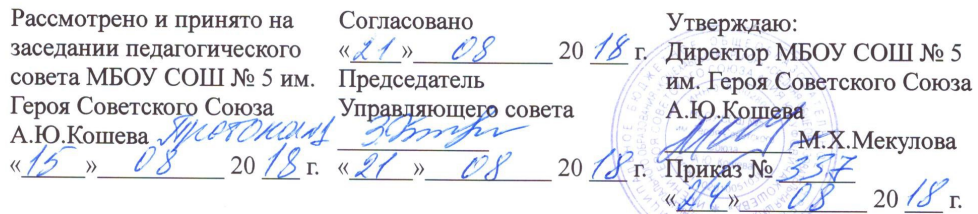 Рассмотрено и принято на
заседании педагогического
совета МБОУ СОШ № 5 им.
Героя Советского Союза
А.Ю.Кошева Протокол
«15» 08 2018 г.
Согласовано
«21» 08 2018 г.
Председатель
Управляющего совета
«21» 08 2018 г.
Утверждаю:
Директор МБОУ СОШ № 5
им. Героя Советского Союза
А.Ю.Кошева
М.Х.Мекулова
Приказ № 337
«24» 08 2018 г.